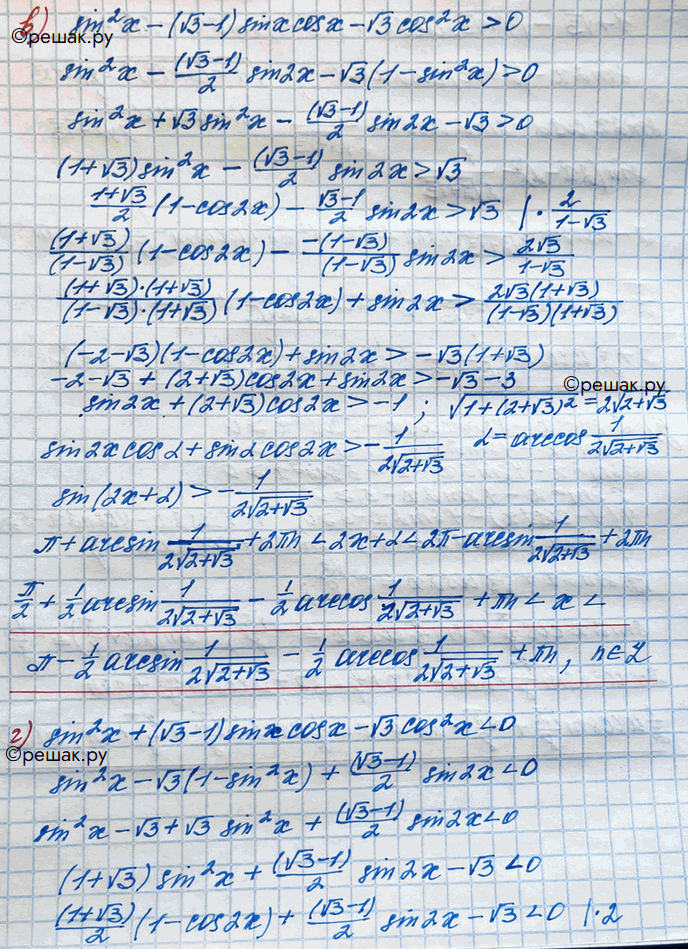 в) sin²x − (√3−1) sinx cosx − √3 cos²x > 0
©решак.ру
sin²x − (√3−1)/2 sin2x − √3(1−sin²x) > 0
sin²x + √3 sin²x − (√3−1)/2 sin2x − √3 > 0
(1+√3) sin²x − (√3−1)/2 sin2x > √3
(1+√3)/2 (1−cos2x) − (√3−1)/2 sin2x > √3 | · 2/(1−√3)
(1+√3)/(1−√3) (1−cos2x) − −(1−√3)/(1−√3) sin2x > 2√3/(1−√3)
(1+√3)·(1+√3)/(1−√3)·(1+√3) (1−cos2x) + sin2x > 2√3(1+√3)/(1−√3)(1+√3)
(−2−√3)(1−cos2x) + sin2x > −√3(1+√3)
−2−√3 + (2+√3)cos2x + sin2x > −√3−3
©решак.ру
sin2x + (2+√3)cos2x > −1 ; √(1+(2+√3)²) = 2√(2+√3)
sin2x cosα + sinα cos2x > − 1/(2√(2+√3)) α = arccos 1/(2√(2+√3))
sin(2x+α) > − 1/(2√(2+√3))
π + arcsin 1/(2√(2+√3)) + 2πn < 2x+α < 2π − arcsin 1/(2√(2+√3)) + 2πn
π/2 + 1/2 arcsin 1/(2√(2+√3)) − 1/2 arccos 1/(2√(2+√3)) + πn < x <
π − 1/2 arcsin 1/(2√(2+√3)) − 1/2 arccos 1/(2√(2+√3)) + πn, n∈Z
г) sin²x + (√3−1) sinx cosx − √3 cos²x < 0
©решак.ру
sin²x − √3(1−sin²x) + (√3−1)/2 sin2x < 0
sin²x − √3 + √3 sin²x + (√3−1)/2 sin2x < 0
(1+√3) sin²x + (√3−1)/2 sin2x − √3 < 0
(1+√3)/2 (1−cos2x) + (√3−1)/2 sin2x − √3 < 0 | · 2